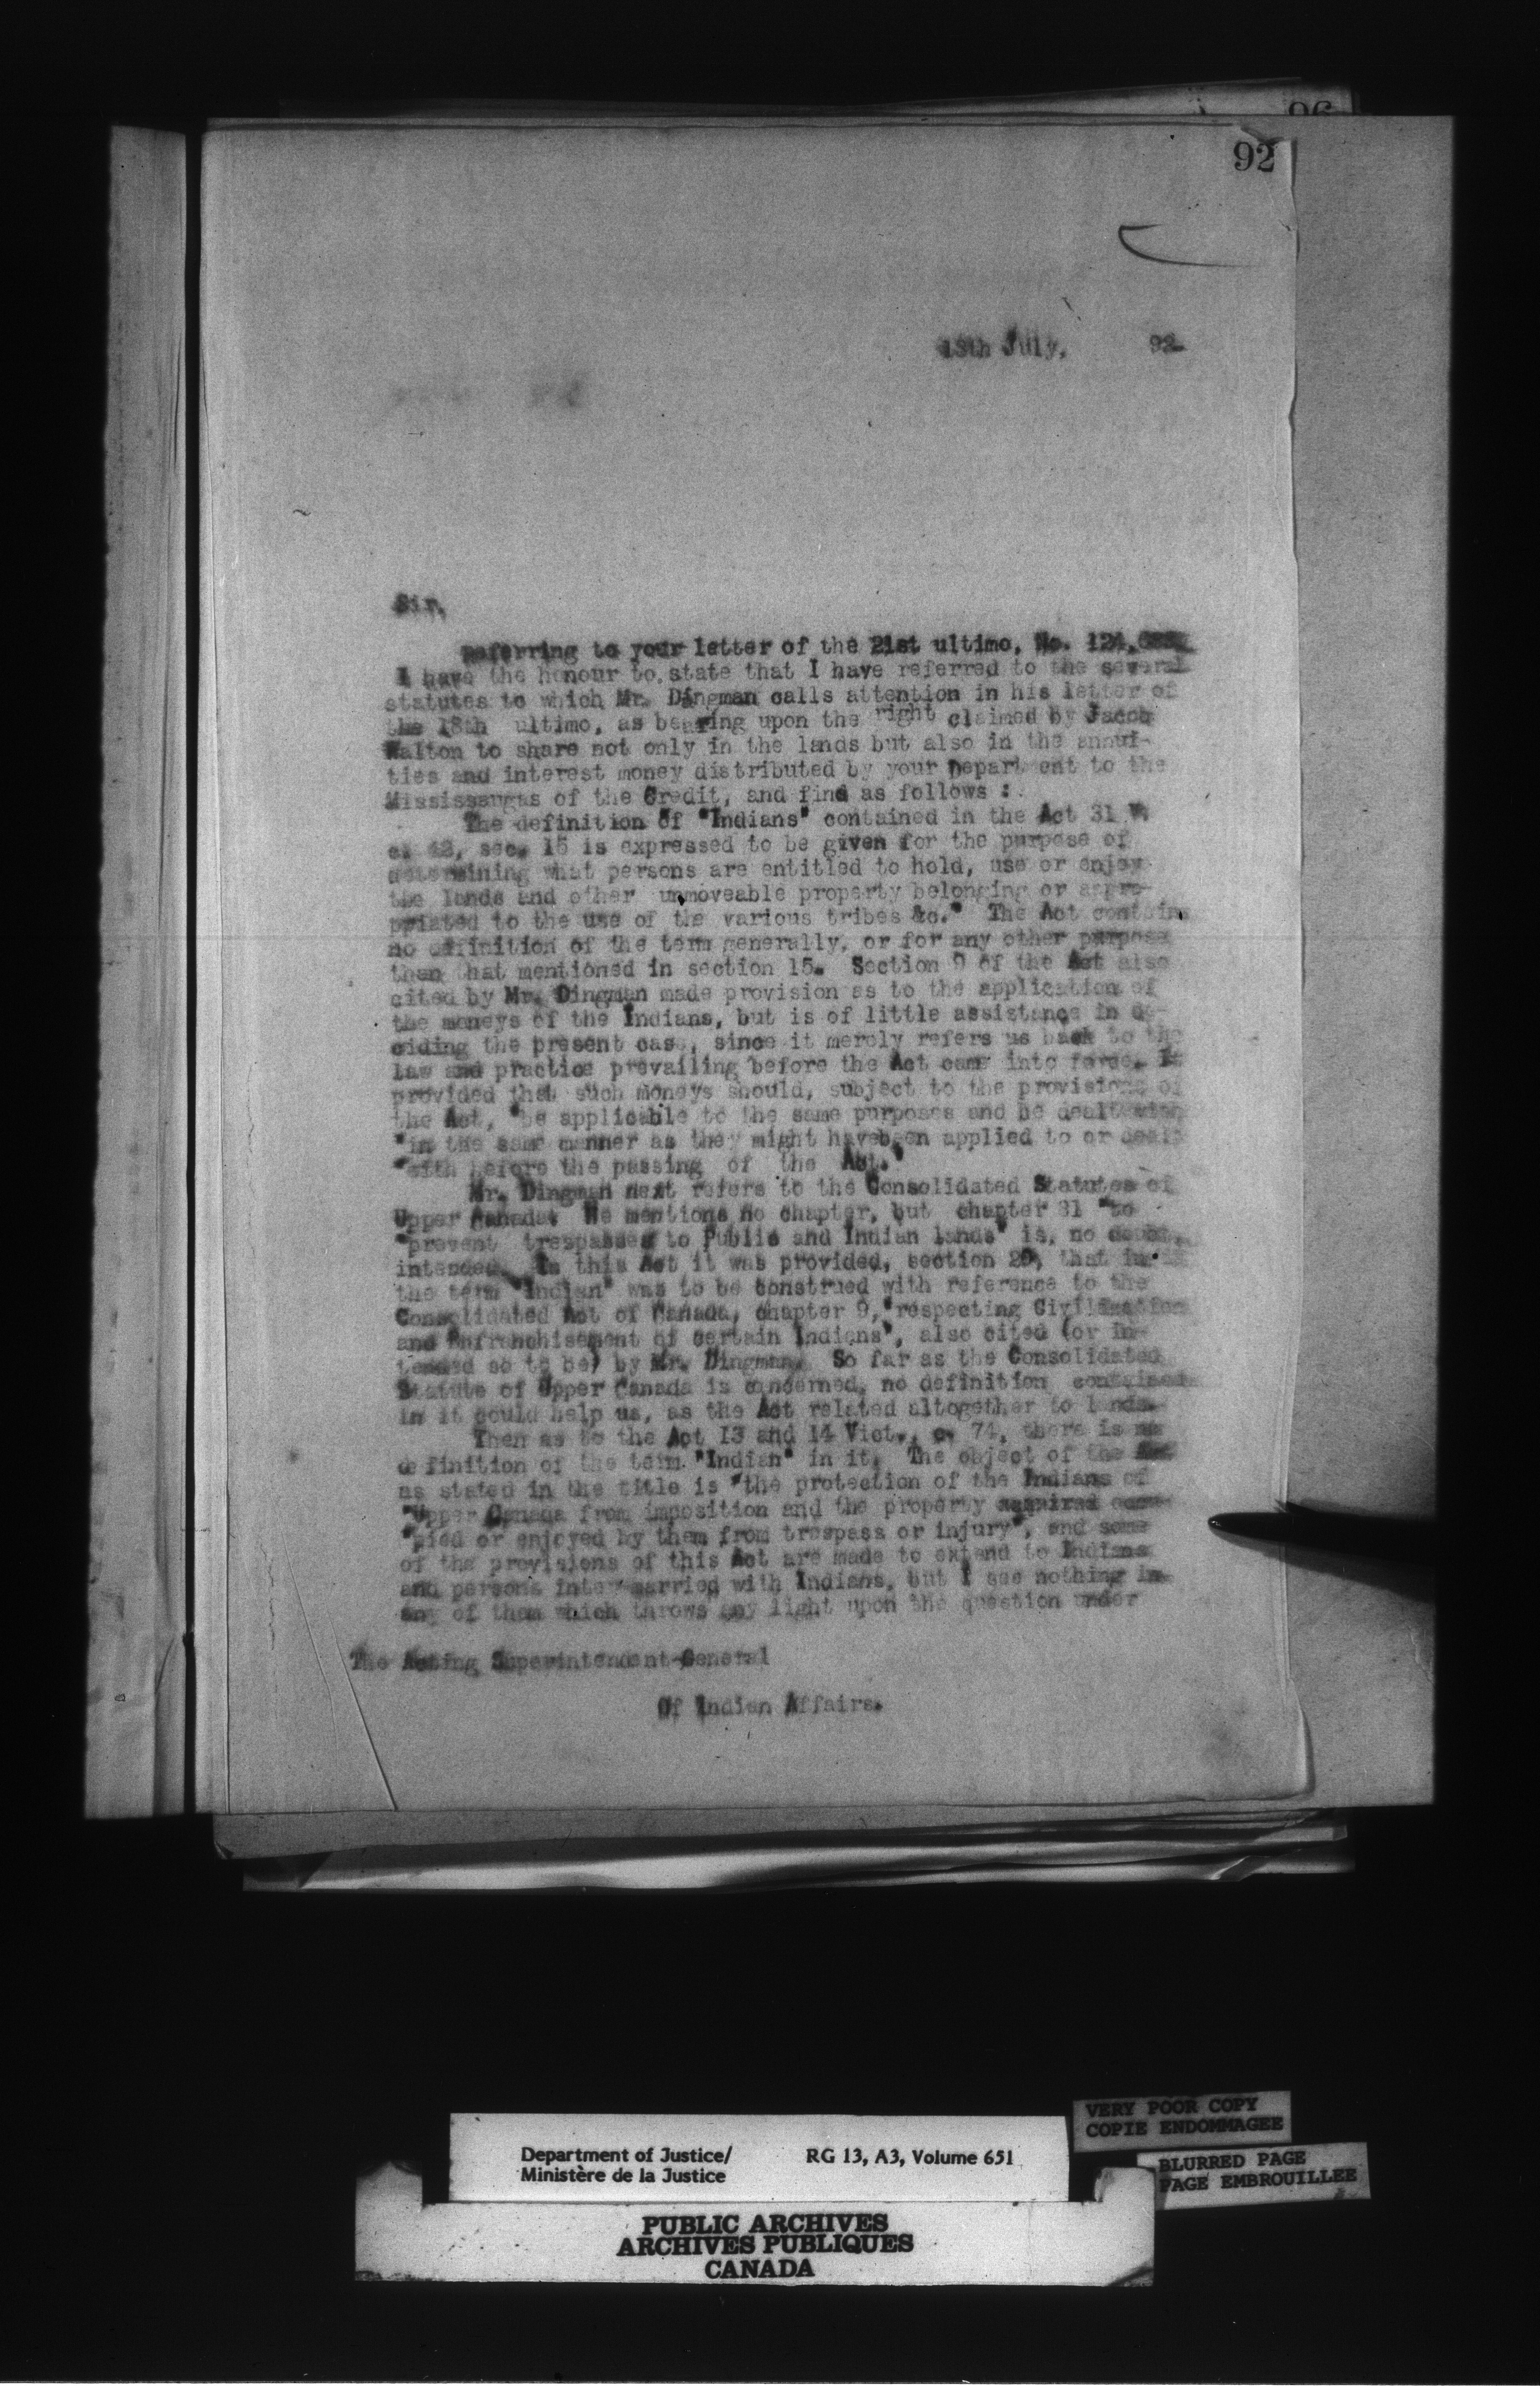 92
13th July, 92
Sir,
Referring to your letter of the 21st ultimo, No. 124,
I have the honour to state that I have referred to the several
statutes to which Mr. Dingman calls attention in his letter of
the 18th ultimo, as bearing upon the right claimed by Jacob
Walton to share not only in the lands but also in the annui-
ties and interest money distributed by your Department to the
Mississaugas of the Credit, and find as follows :
The definition of "Indians" contained in the Act 31 V.
c. 42, sec. 15 is expressed to be given for the purpose of
determining what persons are entitled to hold, use or enjoy
the lands and other unmoveable property belonging or appro-
priated to the use of the various tribes &c." The Act contains
no definition of the term generally, or for any other purpose
than that mentioned in section 15. Section 9 of the Act also
cited by Mr. Dingman made provision as to the application of
the moneys of the Indians, but is of little assistance in de-
ciding the present case, since it merely refers us back to the
law and practice prevailing before the Act came into force. It
provided that such moneys should, subject to the provisions of
the Act, "be applicable to the same purposes and be dealt with
"in the same manner as they might have been applied to or dealt
"with before the passing of the Act."
Mr. Dingman next refers to the Consolidated Statutes of
Upper Canada. He mentions no chapter, but chapter 81 "to
"prevent trespasses to Public and Indian lands" is, no doubt,
intended. In this Act it was provided, section 20, that in
the term "Indian" was to be construed with reference to the
Consolidated Act of Canada, chapter 9, "respecting Civilization
and Enfranchisement of certain Indians", also cited (or in-
tended so to be) by Mr. Dingman. So far as the Consolidated
Statute of Upper Canada is concerned, no definition contained
in it could help us, as the Act related altogether to lands.
Then as to the Act 13 and 14 Vict., c. 74, there is no
definition of the term "Indian" in it. The object of the Act
as stated in the title is "the protection of the Indians of
"Upper Canada from imposition and the property acquired occu-
"pied or enjoyed by them from trespass or injury", and some
of the provisions of this Act are made to extend to Indians
and persons inter-married with Indians, but I see nothing in
any of them which throws any light upon the question under
The Acting Superintendent-General
Of Indian Affairs.
VERY POOR COPY
COPIE ENDOMMAGEE
Department of Justice/ RG 13, A3, Volume 651
Ministère de la Justice
BLURRED PAGE
PAGE EMBROUILLEE
PUBLIC ARCHIVES
ARCHIVES PUBLIQUES
CANADA